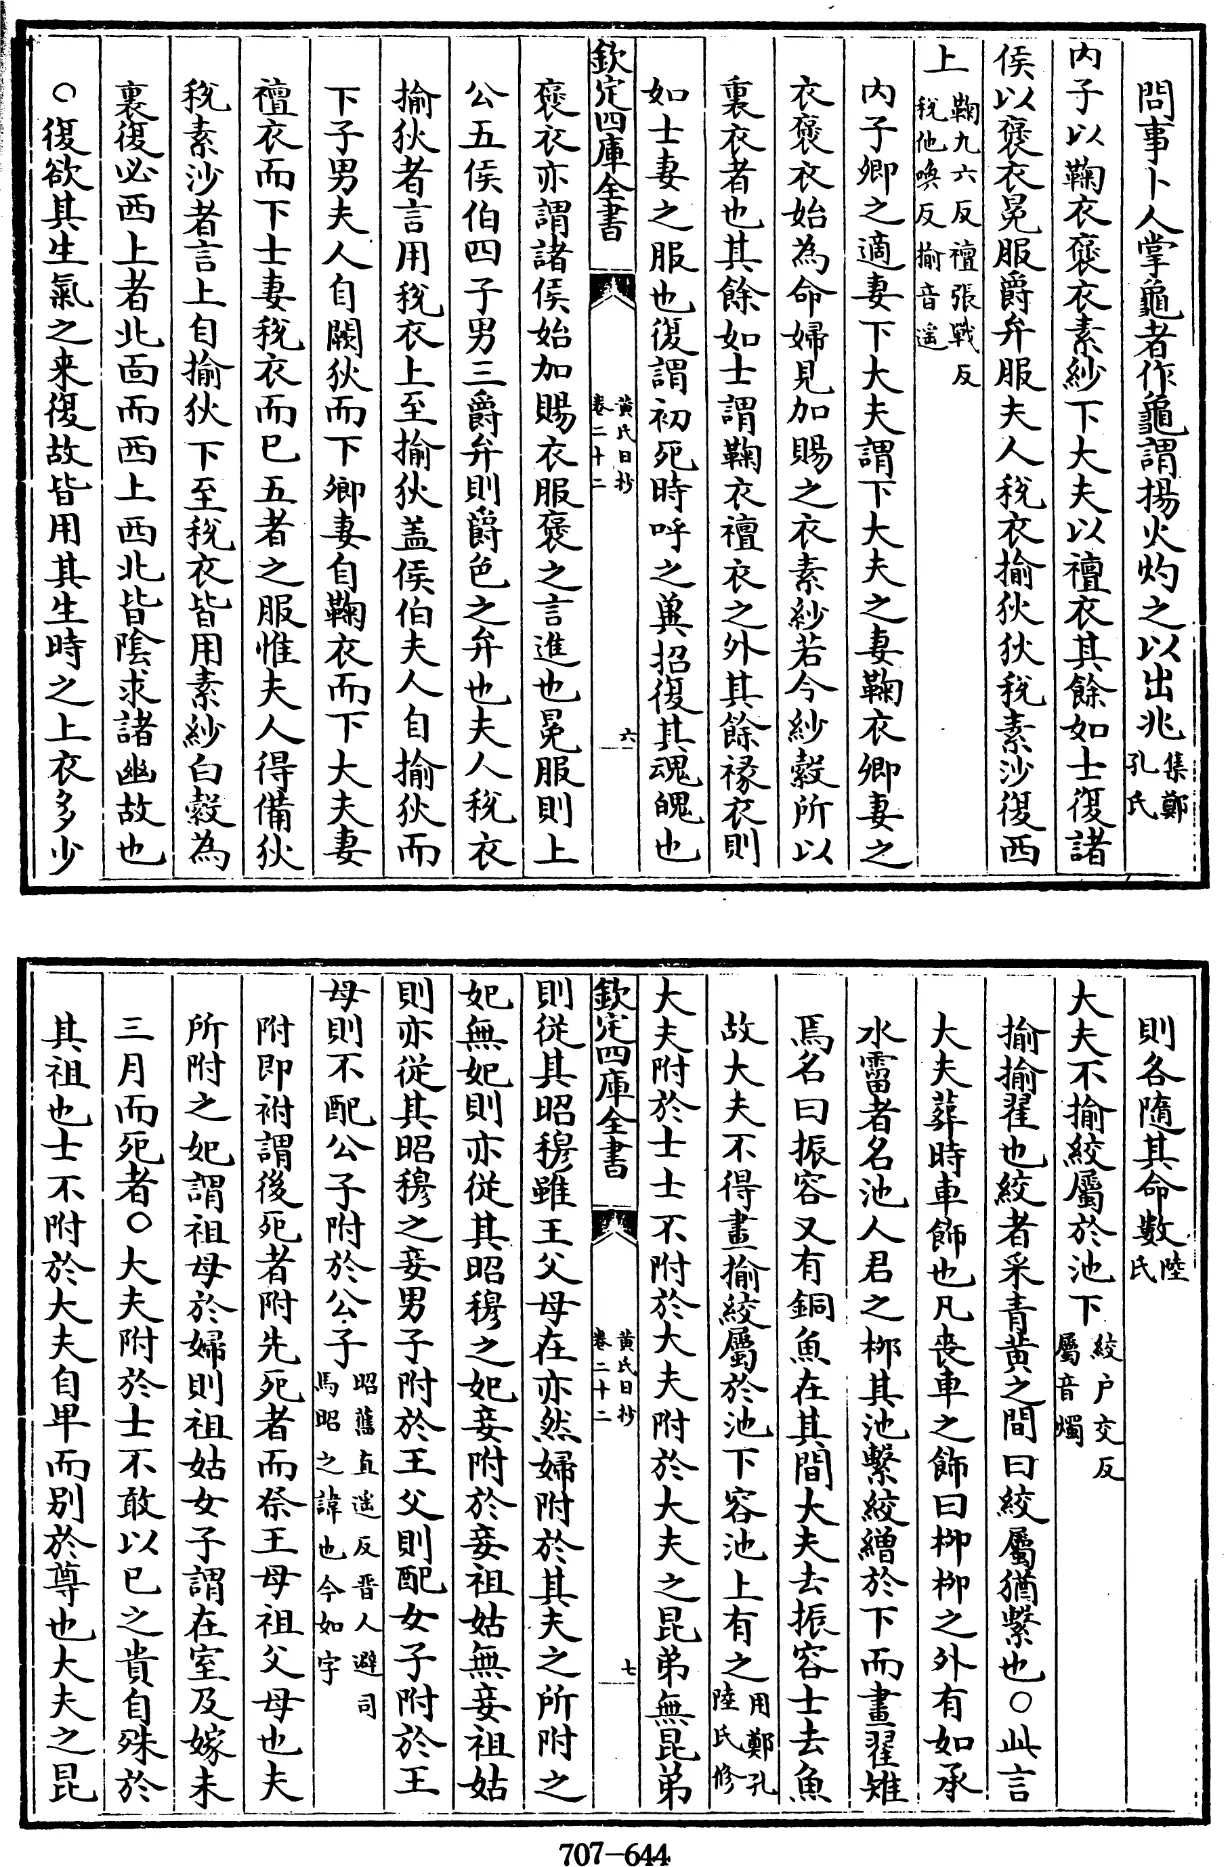 問事卜人掌龜者作龜謂揚火灼之以出兆集鄭孔氏
內子以鞠衣褒衣素紗下大夫以襢衣其餘如士復諸
侯以褒衣冕服爵弁服夫人稅衣揄狄狄稅素沙復西
上鞠九六反襢張戰反稅他喚反揄音遥
內子卿之適妻下大夫謂下大夫之妻鞠衣卿妻之
衣褒衣始為命婦見加賜之衣素紗若今紗縠所以
裏衣者也其餘如士謂鞠衣襢衣之外其餘褖衣則
如士妻之服也復謂初死時呼之兾招復其魂魄也
欽定四庫全書
黃氏日抄
卷二十二
六
褒衣亦謂諸侯始加賜衣服褒之言進也冕服則上
公五侯伯四子男三爵弁則爵色之弁也夫人稅衣
揄狄者言用稅衣上至揄狄盖侯伯夫人自揄狄而
下子男夫人自闕狄而下卿妻自鞠衣而下大夫妻
襢衣而下士妻稅衣而已五者之服惟夫人得備狄
稅素沙者言上自揄狄下至稅衣皆用素紗白縠為
裏復必西上者北面而西上西北皆陰求諸幽故也
○復欲其生氣之来復故皆用其生時之上衣多少
則各隨其命數陸氏
大夫不揄絞屬於池下絞户交反屬音燭
揄揄翟也絞者采青黃之間曰絞屬猶繫也○此言
大夫葬時車飾也凡喪車之飾曰柳柳之外有如承
水霤者名池人君之栁其池繫絞繒於下而畫翟雉
焉名曰振容又有銅魚在其間大夫去振容士去魚
故大夫不得畫揄絞屬於池下容池上有之用鄭孔陸氏修
大夫附於士士不附於大夫附於大夫之昆弟無昆弟
欽定四庫全書
黃氏日抄
卷二十二
七
則從其昭穆雖王父母在亦然婦附於其夫之所附之
妃無妃則亦從其昭穆之妃妾附於妾祖姑無妾祖姑
則亦從其昭穆之妾男子附於王父則配女子附於王
母則不配公子附於公子昭舊直遥反晋人避司馬昭之諱也今如字
附即祔謂後死者附先死者而祭王母祖父母也夫
所附之妃謂祖母於婦則祖姑女子謂在室及嫁未
三月而死者○大夫附於士不敢以已之貴自殊於
其祖也士不附於大夫自卑而别於尊也大夫之昆
707-644